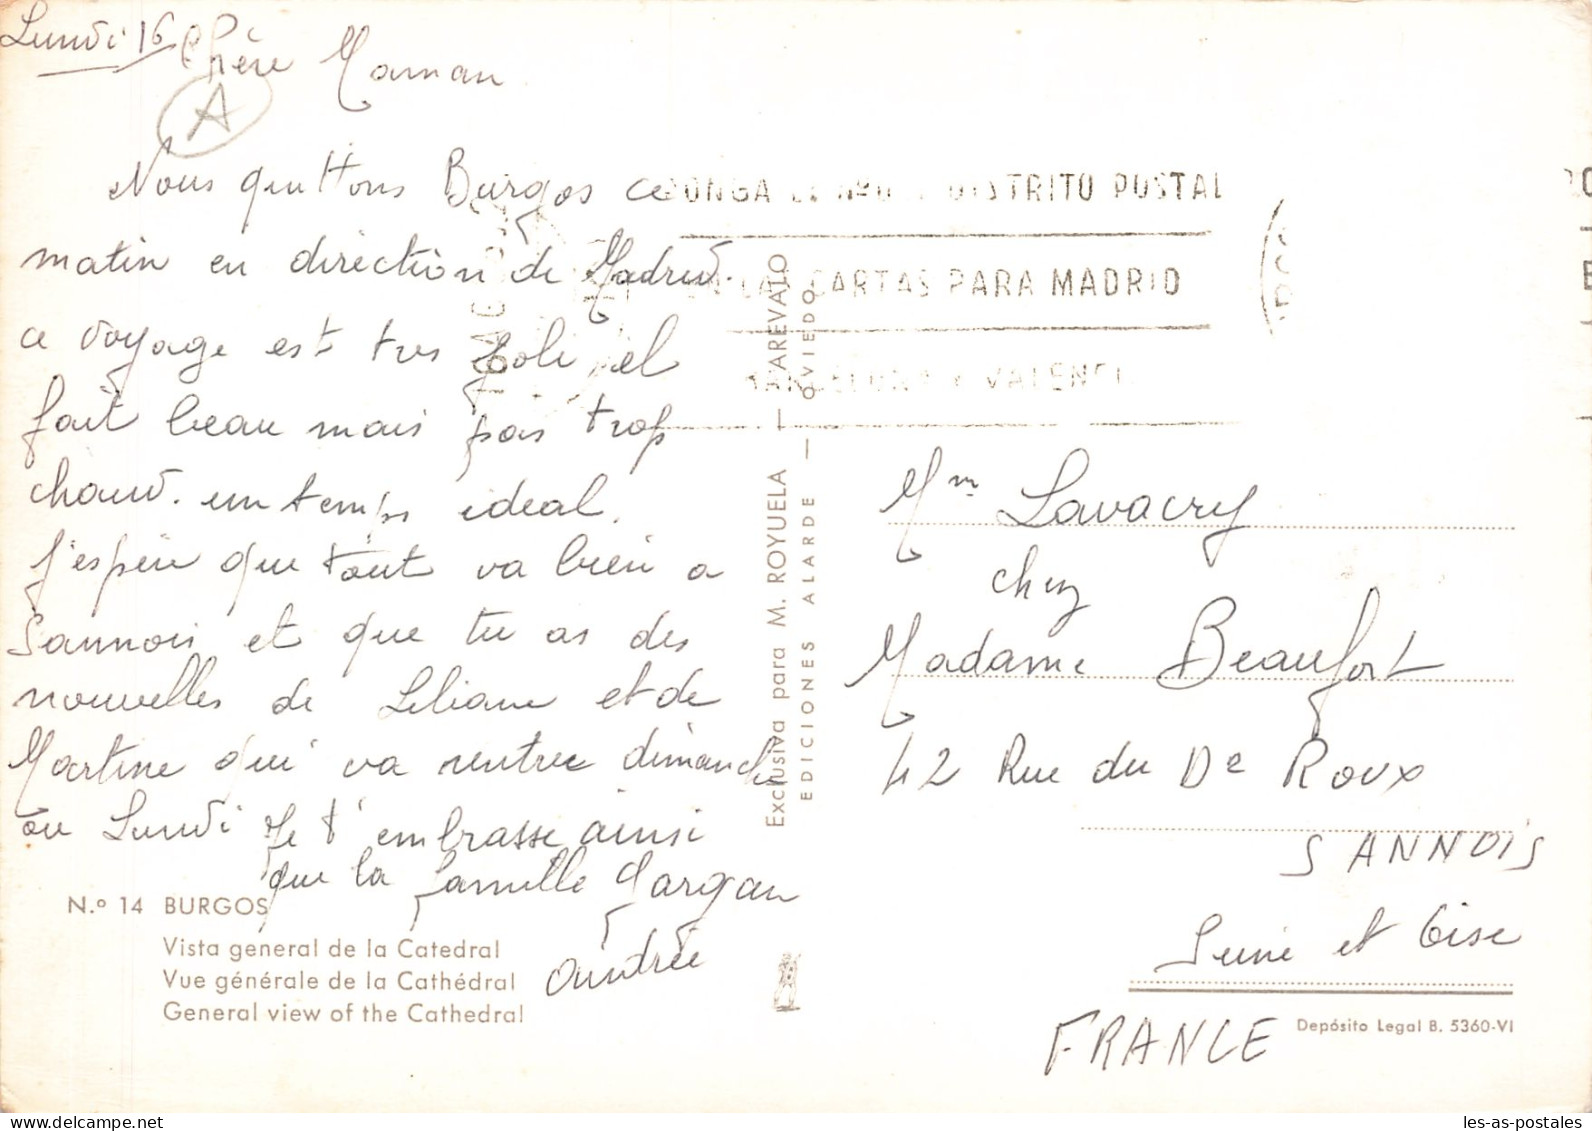 Lundi 16
Chère Maman
A
Nous quittons Burgos ce
matin en direction de Madrid.
ce voyage est tres joli, il
fait beau mais pas trop
chaud. un temps ideal.
J'espère que tout va bien a
Sannois et que tu as des
nouvelles de Liliane et de
Martine qui va rentrer dimanche
ou Lundi Je t'embrasse ainsi
que la famille
Andrée
N.º 14 BURGOS
Vista general de la Catedral
Vue générale de la Cathédral
General view of the Cathedral
Exclusiva para M. ROYUELA — AREVALO
EDICIONES ALARDE — OVIEDO
DISTRITO POSTAL
CARTAS PARA MADRID
Mm Lavacry
chez
Madame Beaufort
42 Rue du De Roux
SANNOIS
Seine et Oise
FRANCE
Depósito Legal B. 5360-VI
les-as-postales.com